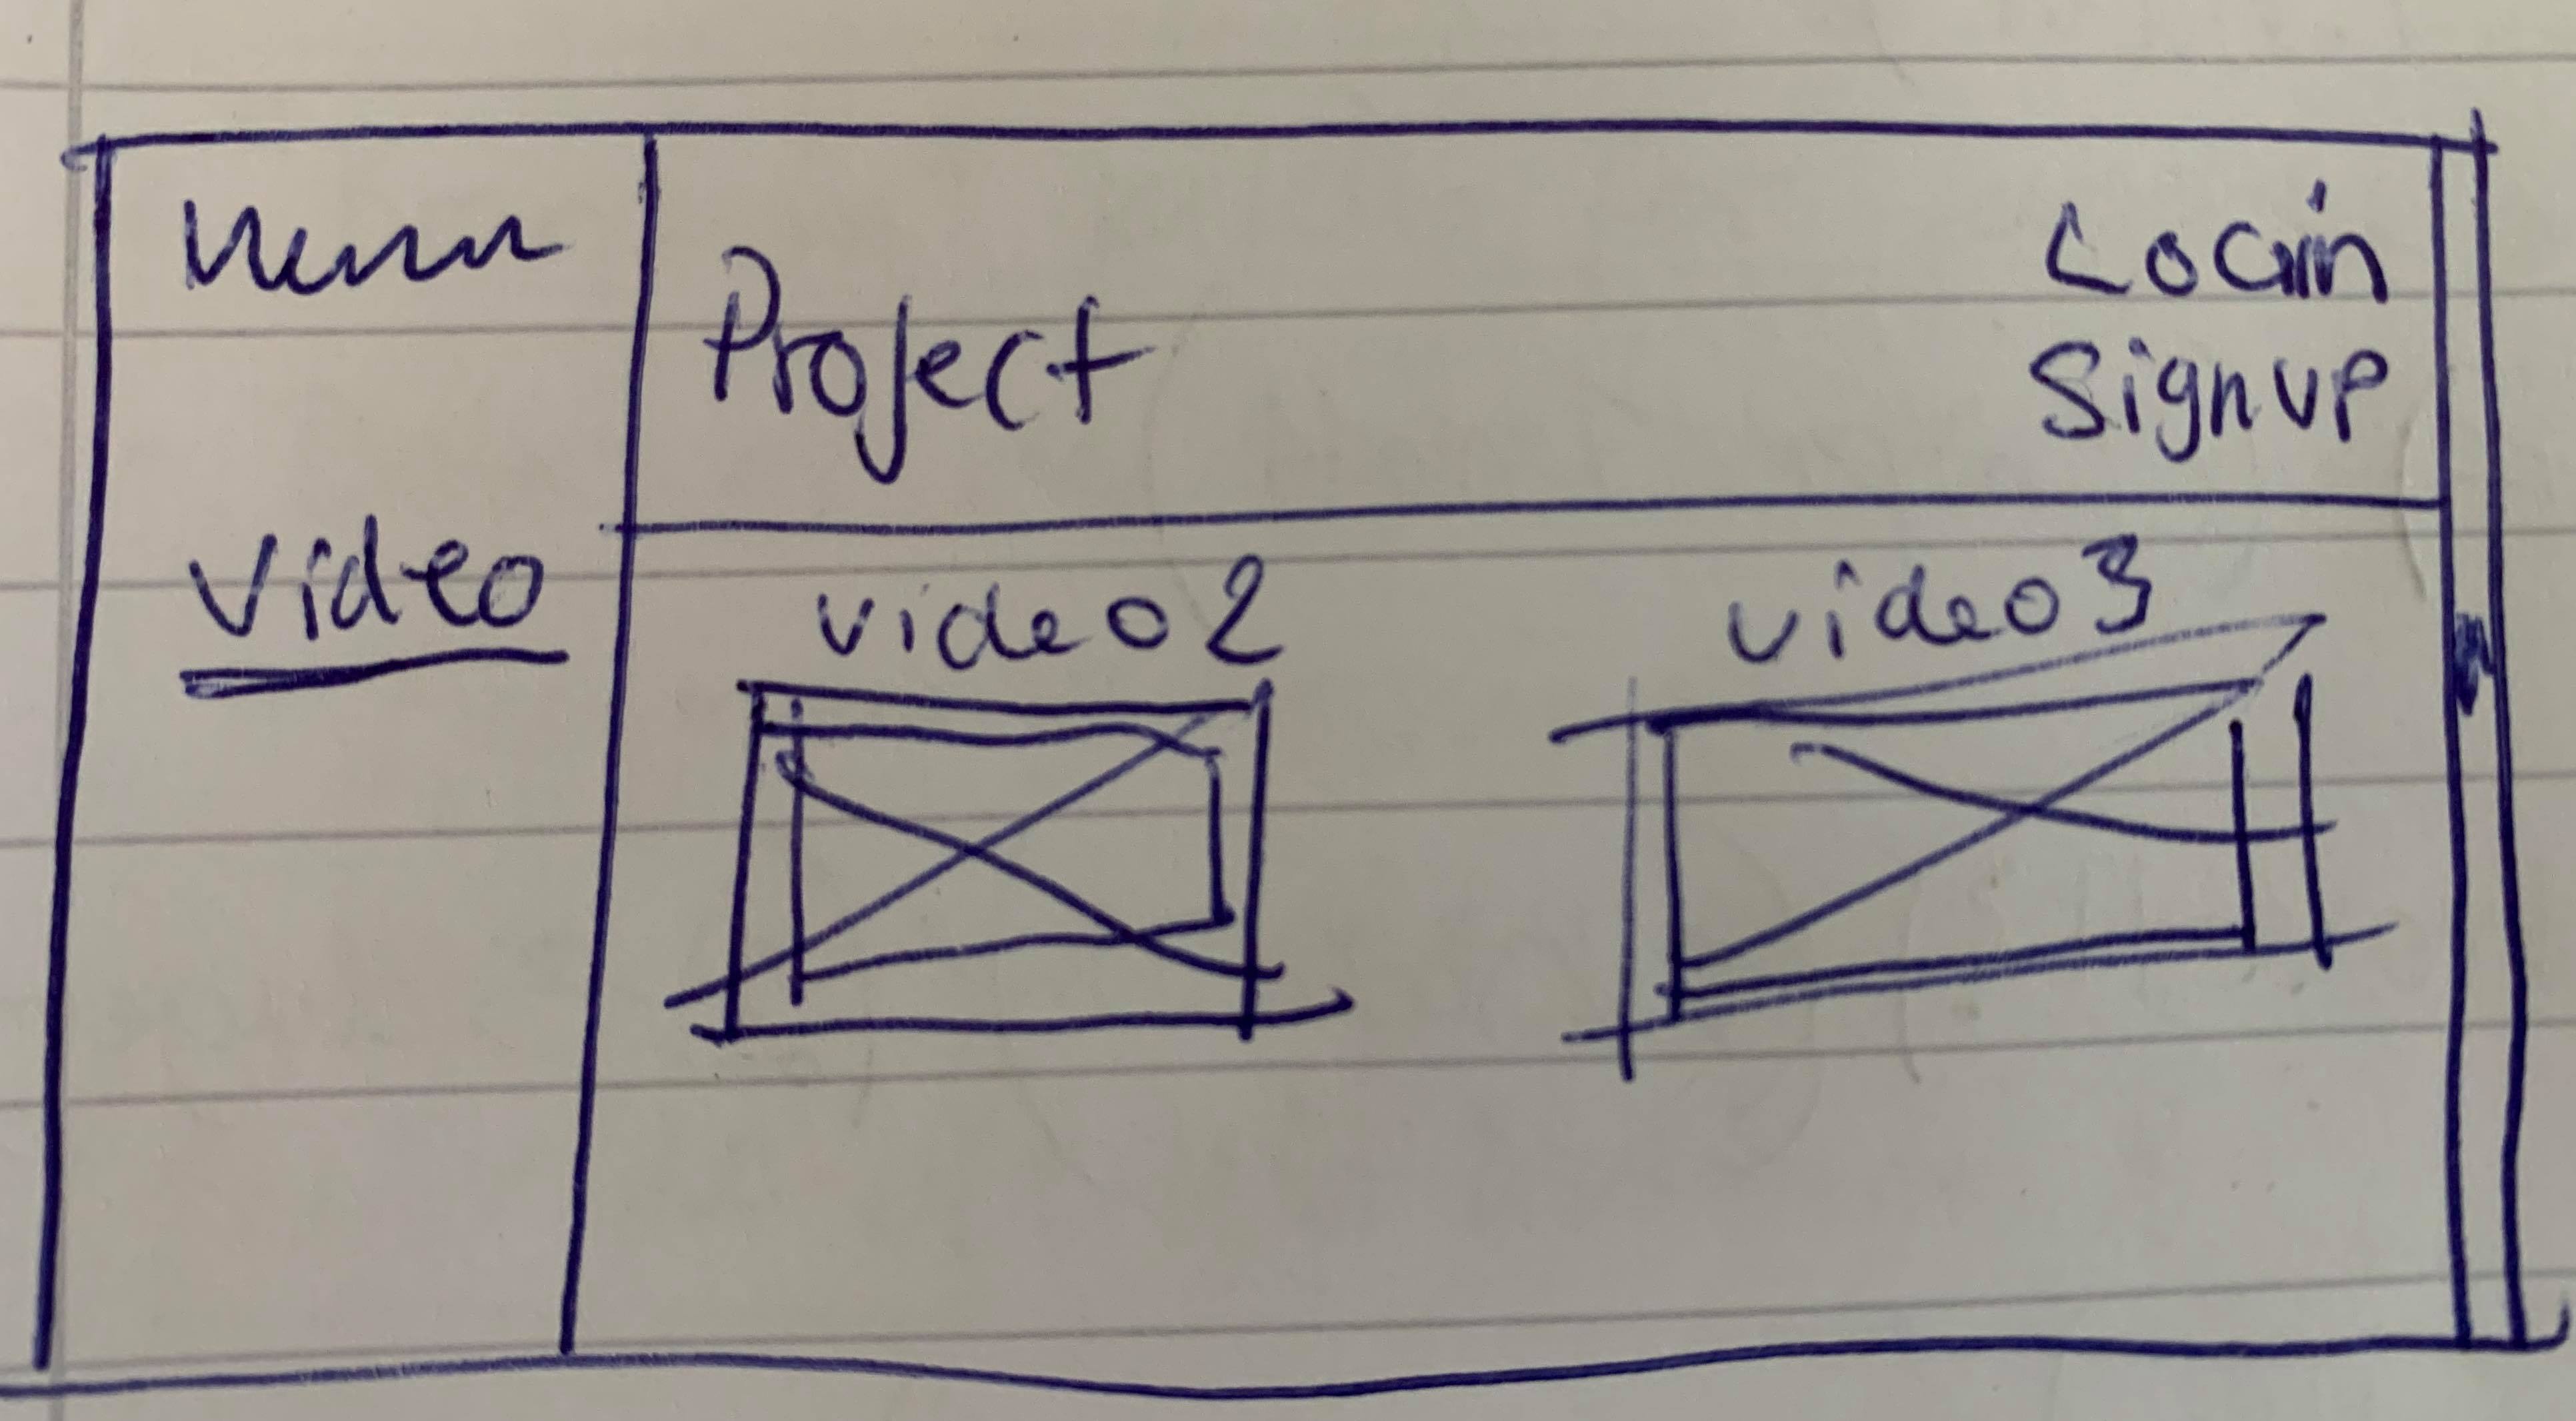 Menu
Video
Project
Login
Signup
video 2
video 3